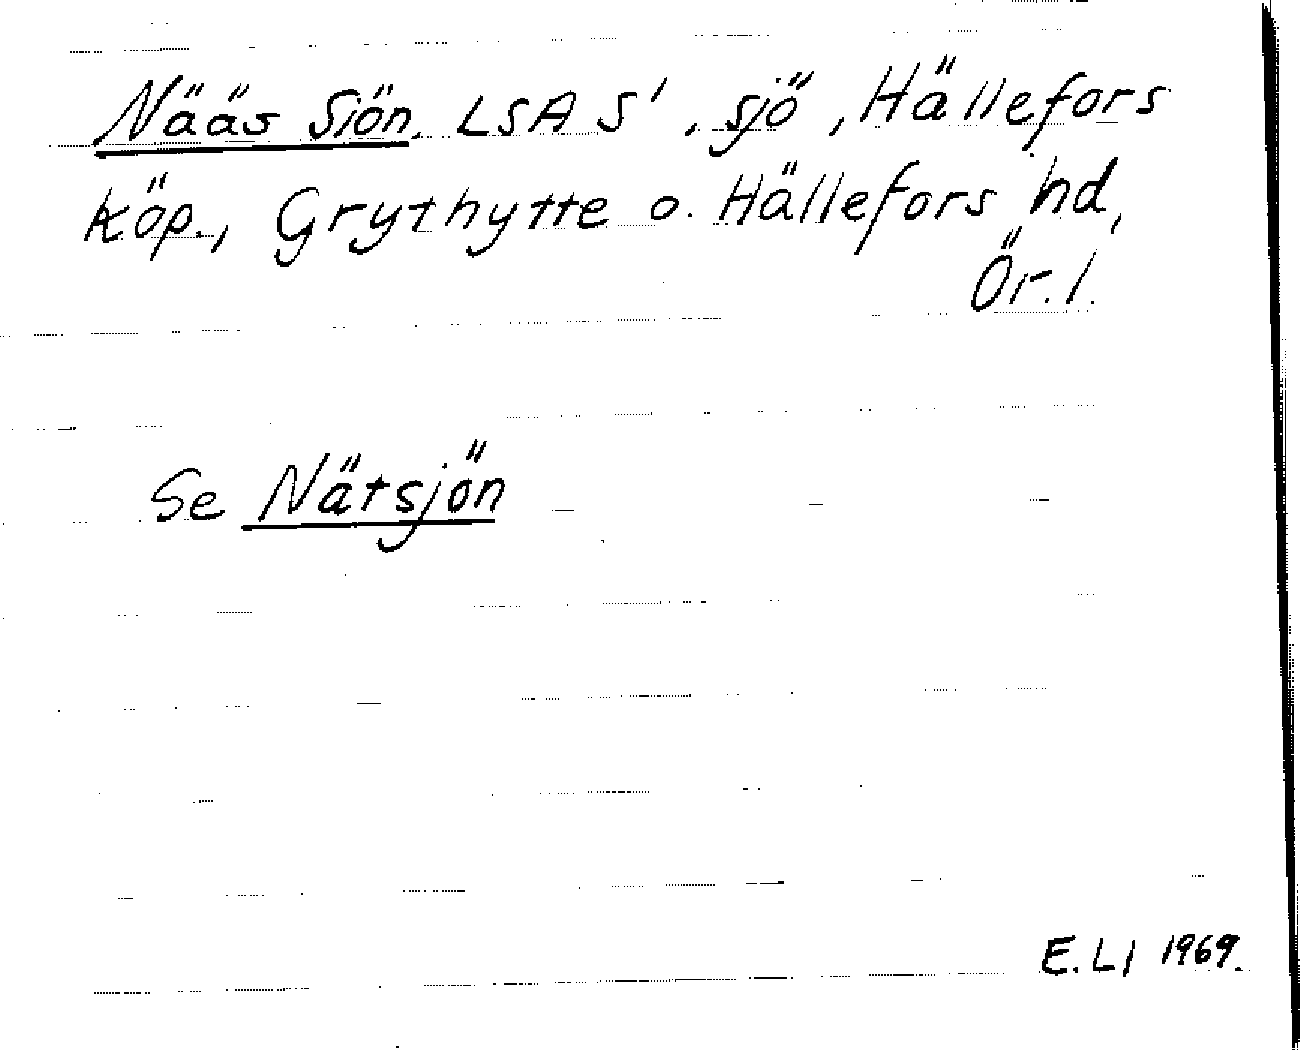 Nääs Siön, LSA S', sjö, Hällefors
köp., Grythytte o. Hällefors hd,
Ör. l.
Se Nätsjön
E. Ll 1969.